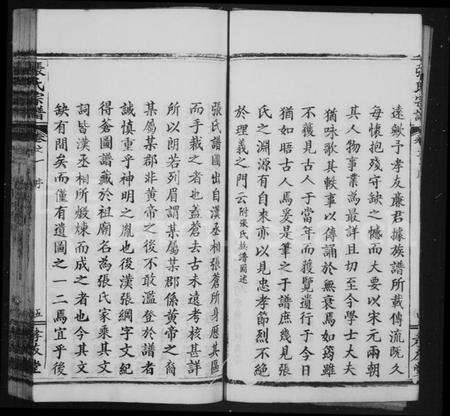 遠歟予孝友廉君據族譜所載傳流既久
每懷抱殘守缺之憾而大要以宋元兩朝
其人物事業為最詳且切至今學士大夫
猶咏歌其軼事以傳誦於無衰焉如筠雖
不獲見古人于當年而獲覽遺行于今日
猶如晤古人焉爰是筆之于譜庶幾見張
氏之淵源有自來亦以見忠孝節烈不絕
於理義之門云附張氏族譜圖述
張氏譜圖出自漢丞相張蒼所身歷其區
而手載之者也蓋去古未遠考核甚詳
所以朗若列眉謂某屬某郡係黃帝之裔
某屬某郡非黃帝之後不敢濫登於譜者
誠慎重乎神明之胤也後漢張綱字文紀
得蒼圖譜藏於祖廟名為張氏家乘其文
詞皆漢丞相所煅煉而成之者也今其文
缺有間矣而僅有遺圖之一二焉宜乎後
張氏宗譜
卷之一
五
孝友堂